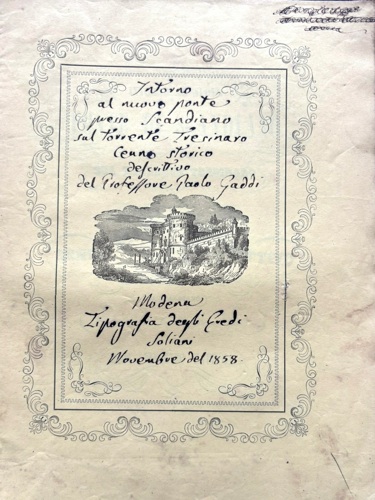 Intorno
al nuovo ponte
presso Scandiano
sul torrente Tresinaro
Cenno storico
descrittivo
del Professore Paolo Gaddi
Modena
Tipografia degli Eredi
Soliani
Novembre del 1858.